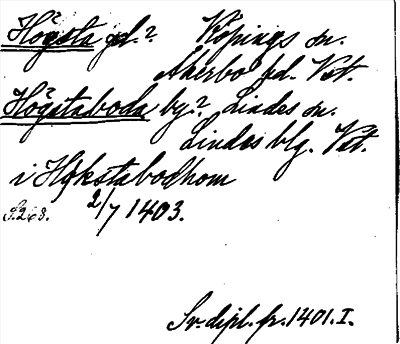 Högsta gd.? Köpings sn.
Åkerbo hd. Vst.
Högstaboda by? Lindes sn.
Lindes blg. Vst.
i Høkstabodhom
S.268. 2/7 1403.
Sv. dipl. fr. 1401. I.